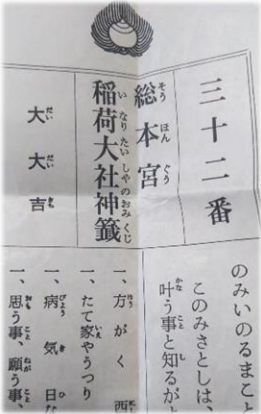 三十二番
総本宮
稲荷大社神籤
大大吉
のみいのるまこと
このみさとしは、
叶う事と知るが
一、方がく 西
一、たて家やうつり
一、病気 日
一、思う事、願う事、